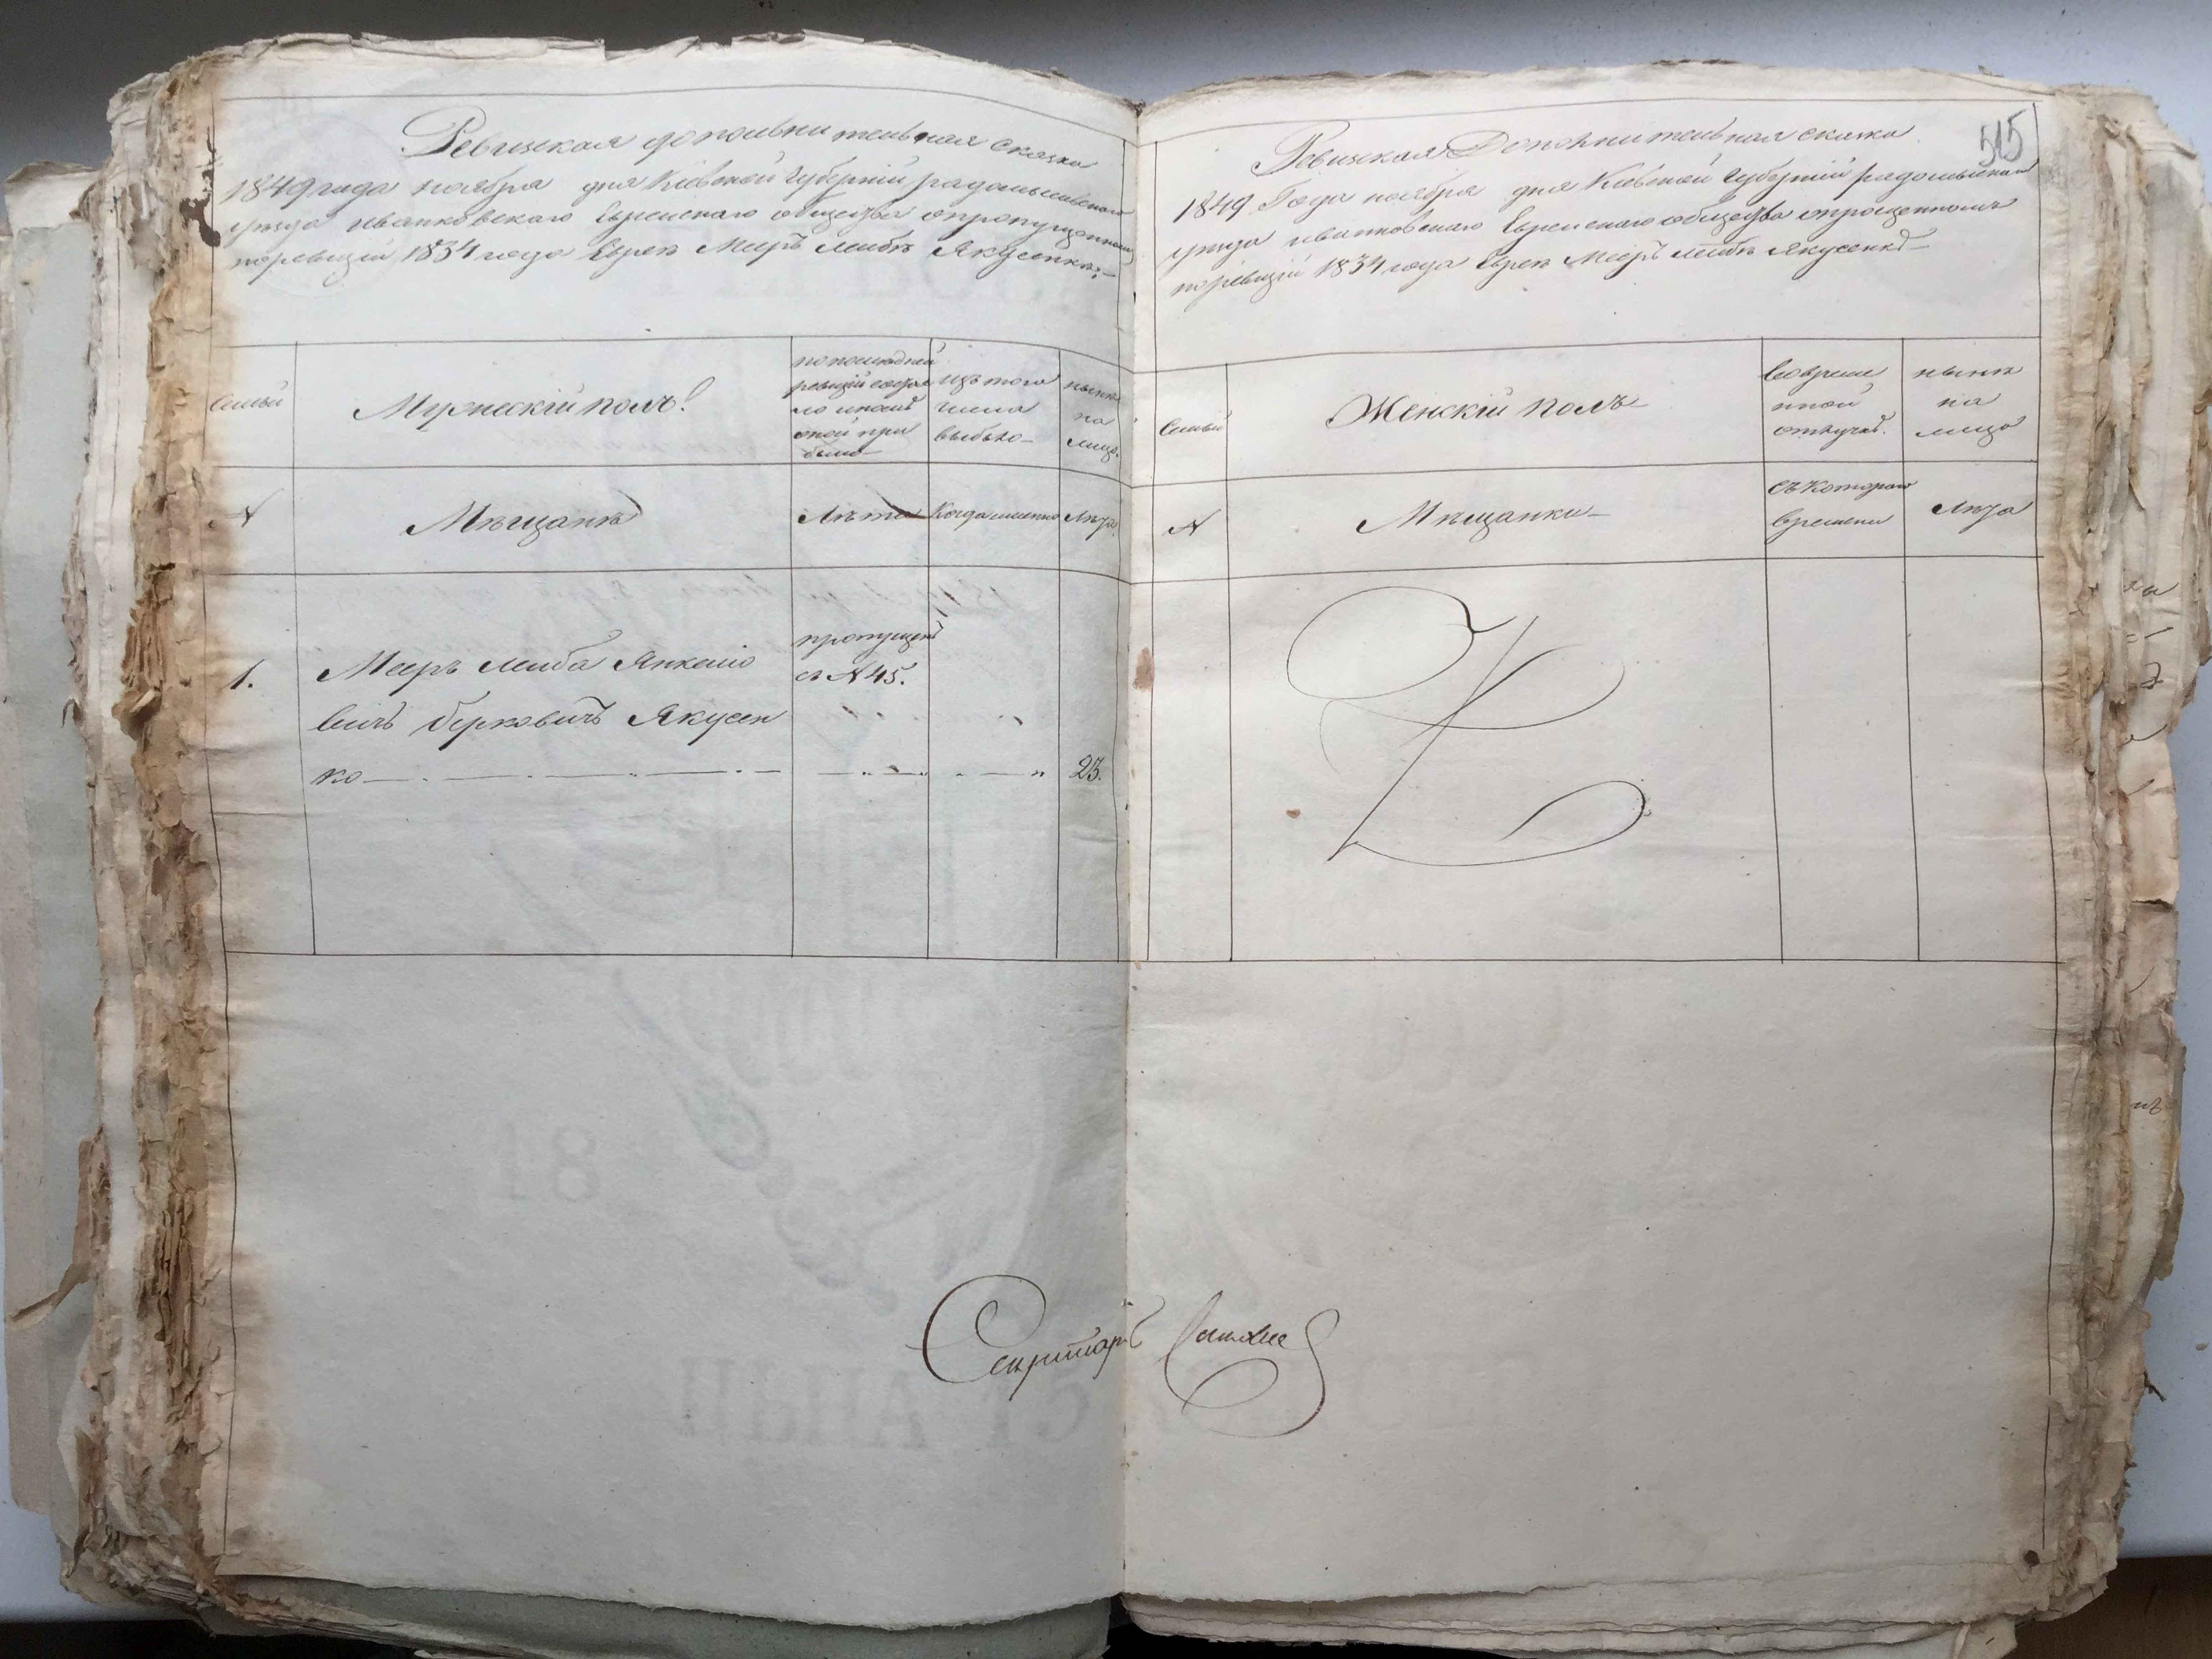 Ревизская дополнительная сказка
1849 года ноября дня Кіевской Губерній радомысльского
уезда иванковского Еврейскаго общества опропущенномъ
поревизій 1834 года Еврея Мееръ Лейбѣ Якусенка
семьи
Мужескій полъ
попоследней
ревизій состоя
ло ипослѣ
оной при
было
изъ того
числа
выбыло
нынѣ
на
лицо
№
Мѣщанъ
Лѣта
Когда именно
Лѣта
1.
Мееръ Лейба Янкеліо
вичъ Берковичъ Якусен
ко
пропущенъ
съ № 45.
23.
515
Ревизская Дополнительная сказка
1849 Года ноября дня Кіевской Губерній радомысльскаго
уезда иванковскаго Еврейскаго общества опропущенномъ
поревизій 1834 года Еврея Мееръ Лейбѣ Якусенкѣ
Семьи
Женскій полъ
Во време
нной
отлучкѣ.
нынѣ
на
лицо
№
Мѣщанки
съ котораго
времени
Лѣта
Секретарь